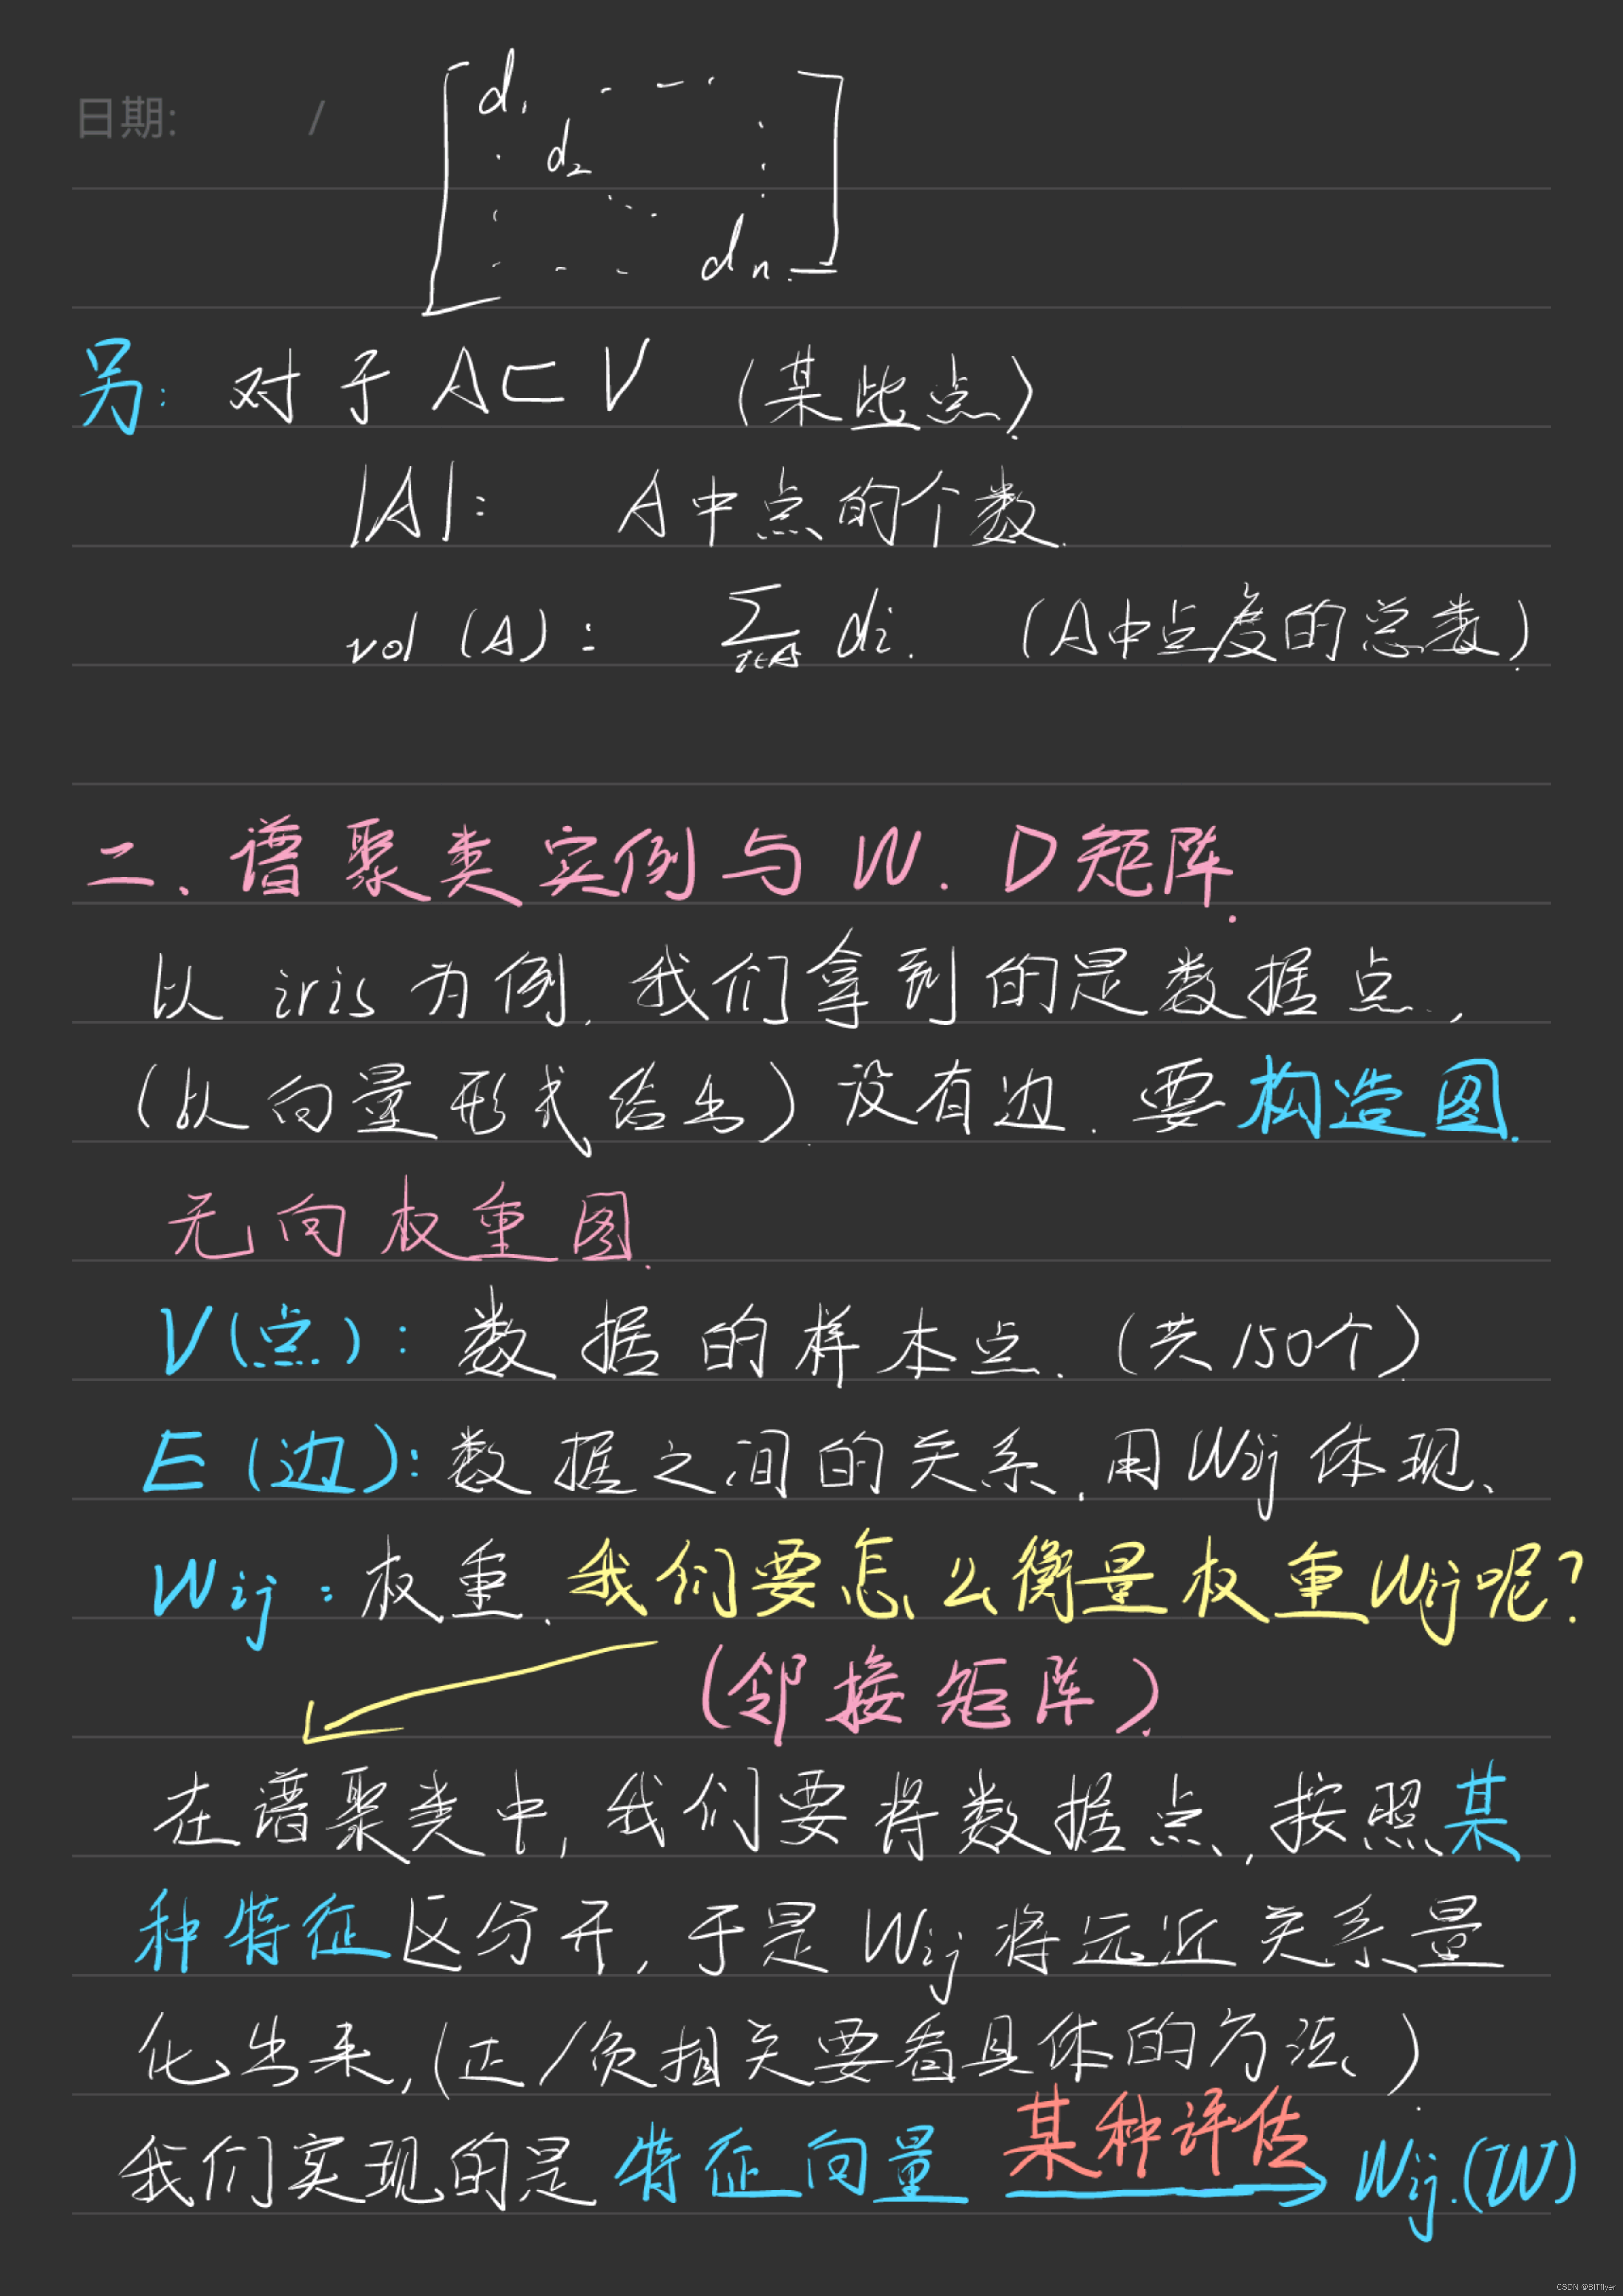 日期: /
d₁ · — ·
· d₂ :
: ·.. :
· - - dₙ
另: 对于 A⊂V (某些点)
|A|: A中点的个数.
vol (A): ∑i∈A di. (A中点度的总数)
二、谱聚类实例与 W. D矩阵.
以 iris 为例, 我们拿到的是数据点,
(以向量形式给出) 没有边. 要构造图.
无向权重图.
V(点): 数据的样本点. (共150个)
E(边): 数据之间的关系, 用Wij体现、
Wij: 权重. 我们要怎么衡量权重Wij呢?
(邻接矩阵)
在谱聚类中, 我们要将数据点, 按照某
种特征区分开, 于是 Wij 将远近关系量
化出来, (正/负相关要看具体的方法、)
某种评估
我们实现的是 特征向量 → Wij.(W)
CSDN @BITflyer